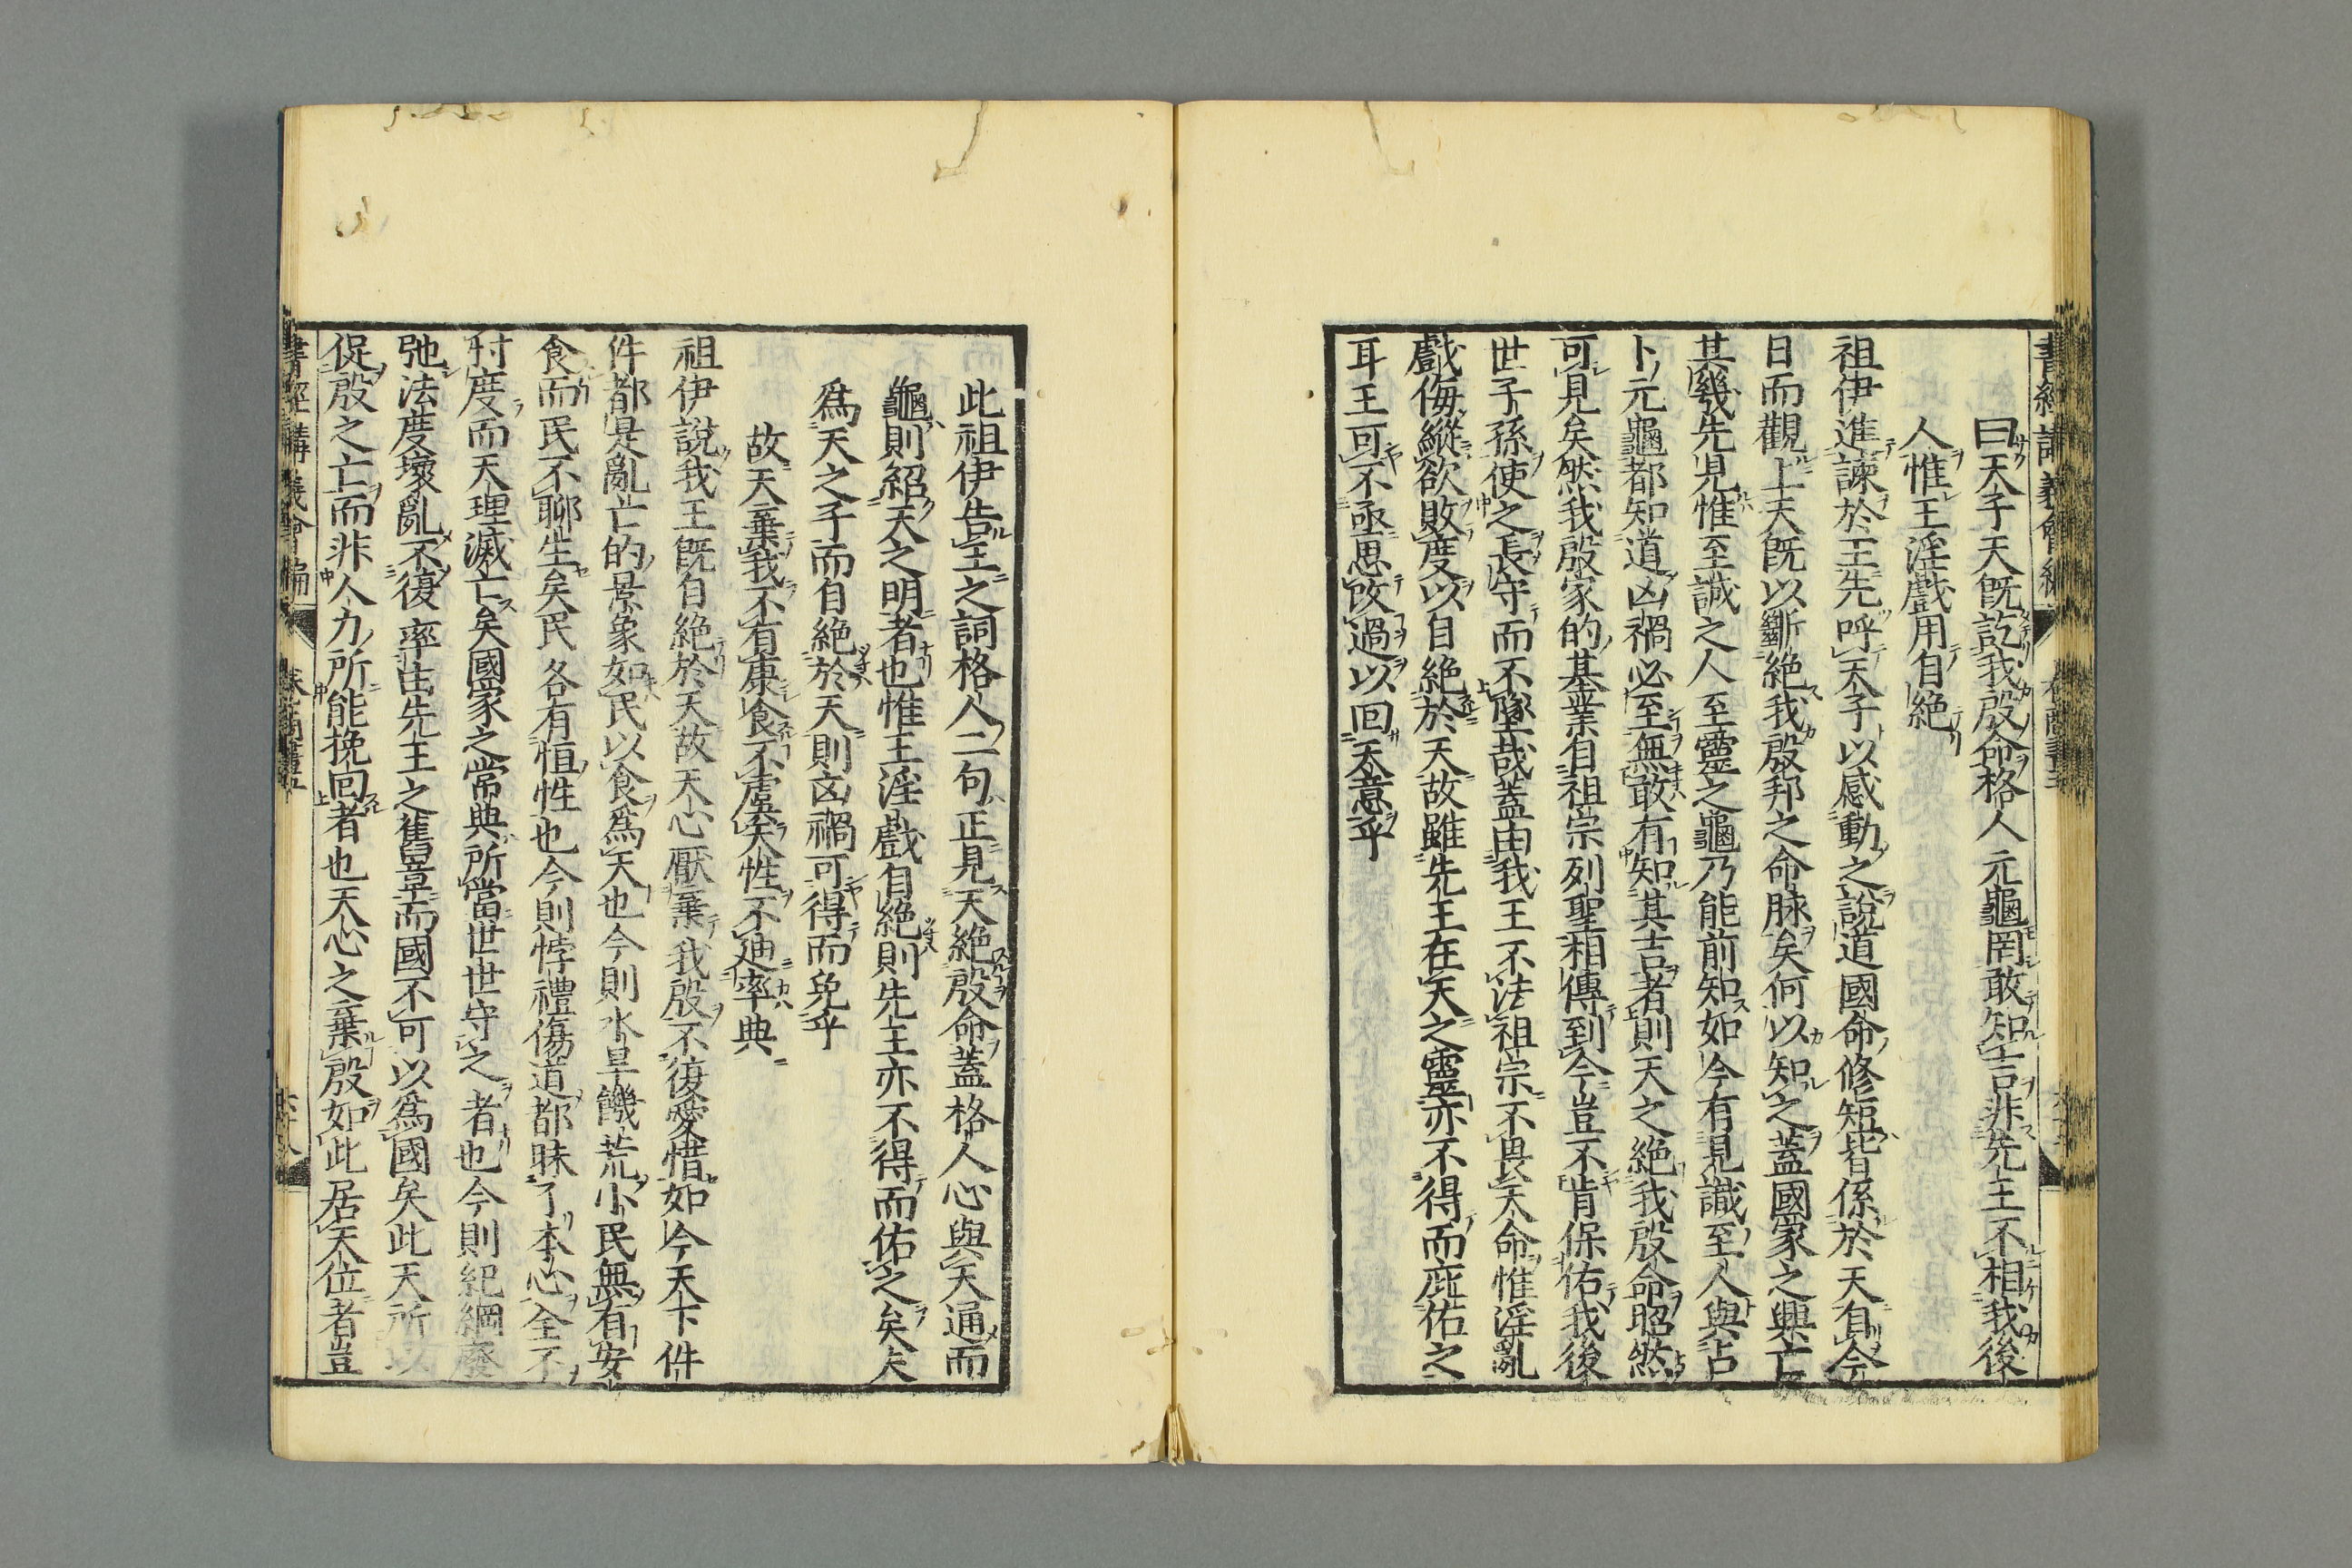 曰天子天旣訖我殷命格人元龜罔敢知吉非先王不相我後
人惟王淫戲用自絕
祖伊進諫於王先呼天子以感動之說道國命修短皆係於天自今
日而觀上天旣以斷絕我殷邦之命脉矣何以知之蓋國家之興亡
其幾先見惟至誠之人至靈之龜乃能前知如今有見識至人與占
卜元龜都知道凶禍必至無敢有知其吉者則天之絕我殷命昭然
可見矣然我殷家的基業自祖宗列聖相傳到今豈不肯保佑我後
世子孫使之長守而不墜哉蓋由我王不法祖宗不畏天命惟淫亂
戲侮縱欲敗度以自絕於天故雖先王在天之靈亦不得而庇佑之
耳王可不亟思改過以回天意乎
此祖伊告王之詞格人二句正見天絕殷命蓋格人心與天通而
龜則紹天之明者也惟王淫戲自絕則先王亦不得而佑之矣夫
爲天之子而自絕於天則凶禍可得而免乎
故天棄我不有康食不虞天性不迪率典
祖伊說我王旣自絕於天故天心厭棄我殷不復愛惜如今天下件
件都是亂亡的景象如民以食爲天也今則水旱饑荒小民無有安
食而民不聊生矣民各有恒性也今則悖禮傷道都昧了本心全不
忖度而天理滅亡矣國家之常典所當世世守之者也今則紀綱廢
弛法度壞亂不復率由先王之舊章而國不可以爲國矣此天所以
促殷之亡而非人力所能挽回者也天心之棄殷如此居天位者豈
書經講義會編